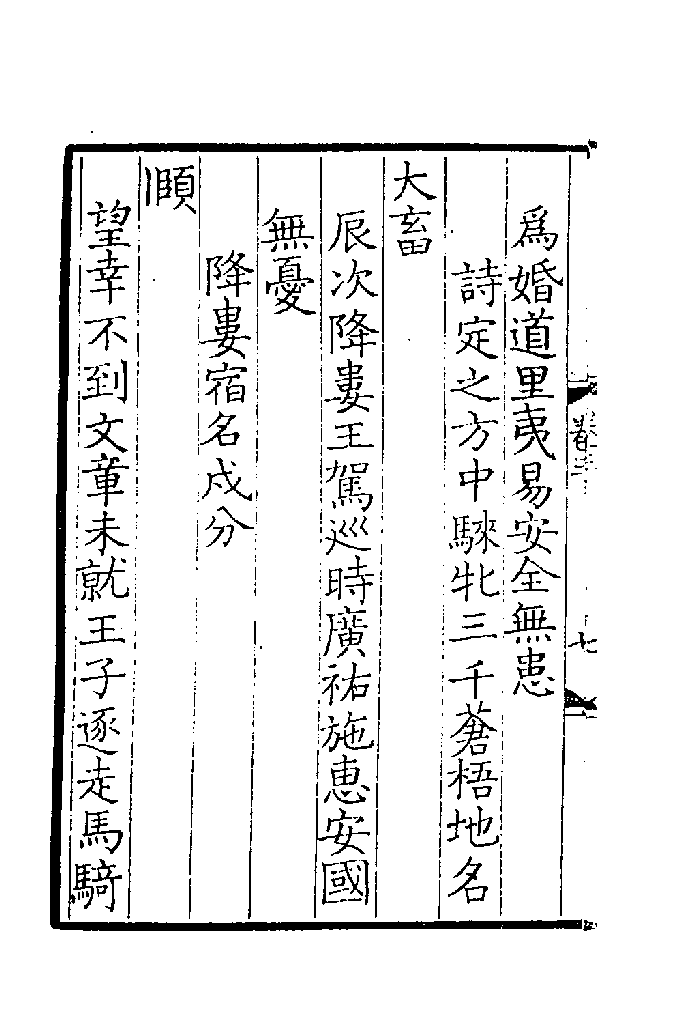 爲婚道里夷易安全無患
詩定之方中騋牝三千蒼梧地名
大畜
辰次降婁王駕巡時廣祐施惠安國
無憂
降婁宿名戍分
頤
望幸不到文章未就王子逐走馬騎
七